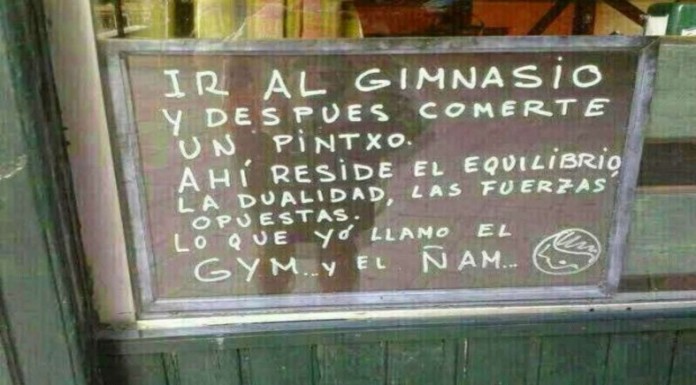 IR AL GIMNASIO
Y DESPUES COMERTE
UN PINTXO.
AHÍ RESIDE EL EQUILIBRIO,
LA DUALIDAD, LAS FUERZAS
OPUESTAS.
LO QUE YÓ LLAMO EL
GYM...Y EL ÑAM...